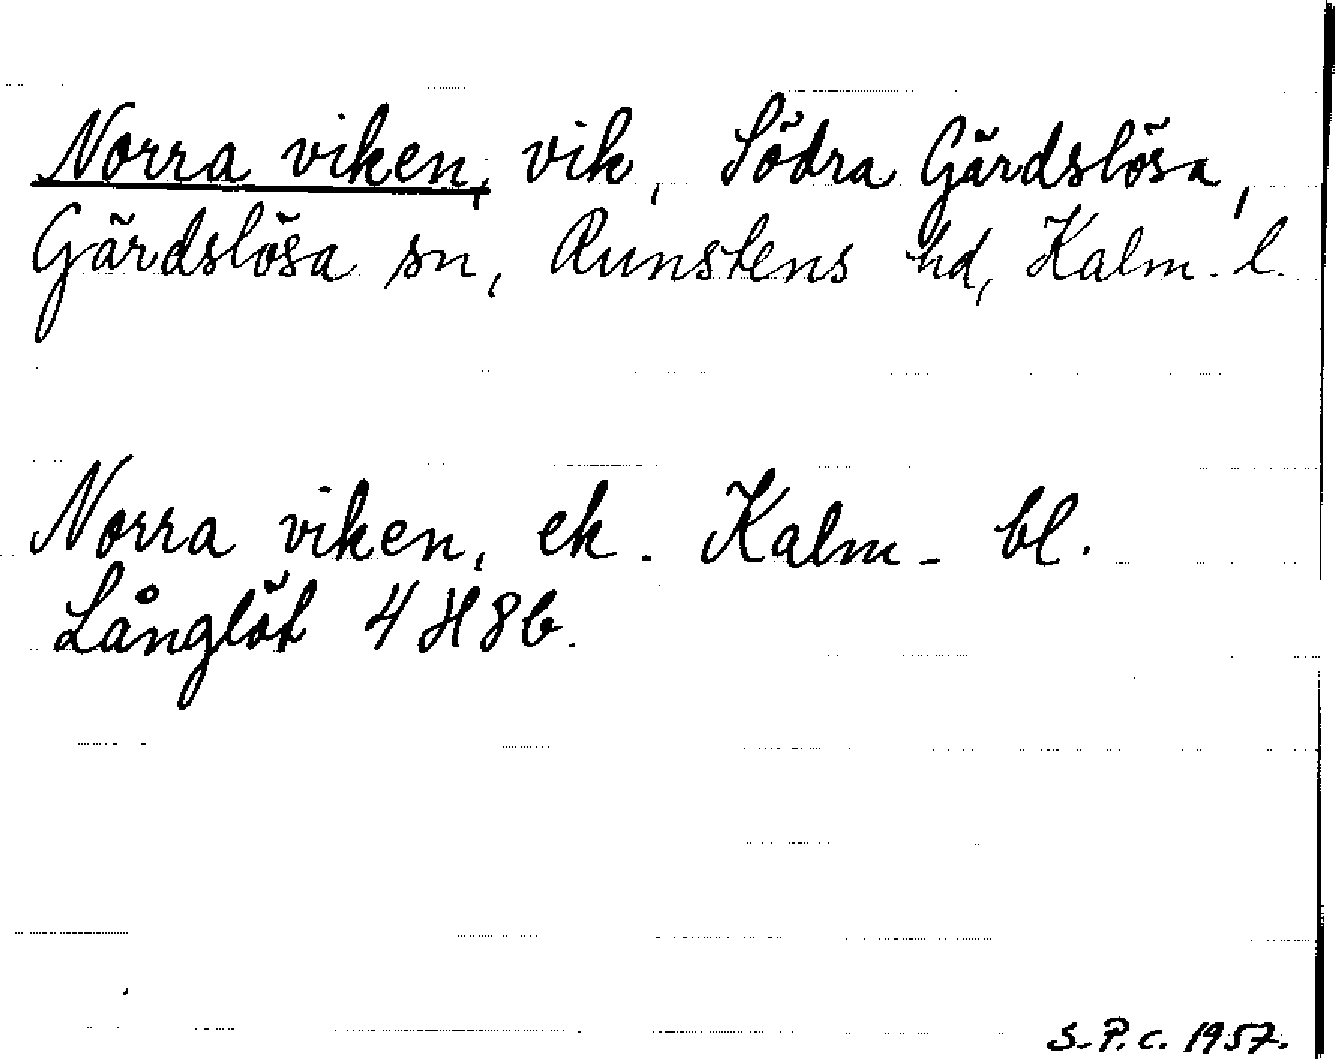 Norra viken, vik, Södra Gärdslösa,
Gärdslösa sn, Runstens hd, Kalm. l.
Norra viken, ek. Kalm. bl.
Långlöt 4 H 8 b.
S.P.C. 1957.